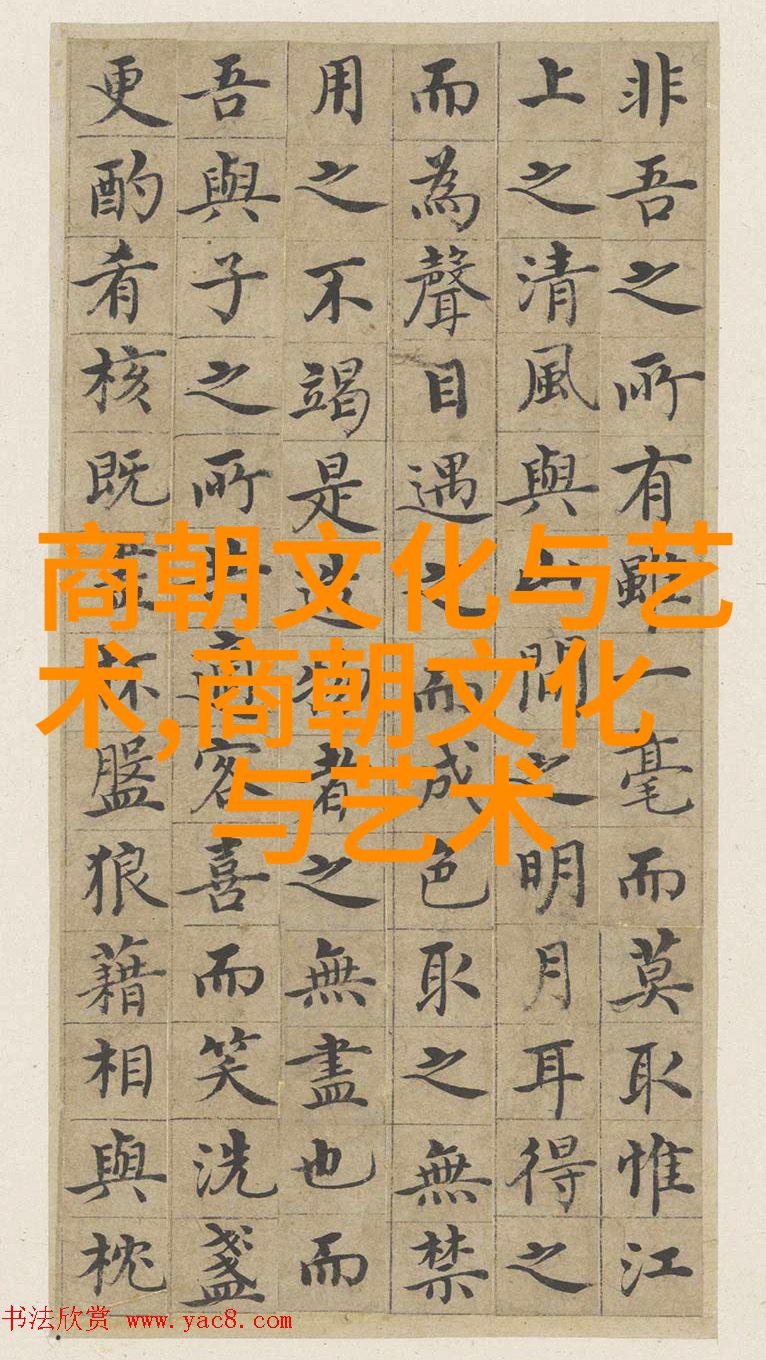 非吾之所有雖一毫而莫取惟江
上之清風與山間之明月耳得之
而為聲目遇之而成色取之無禁
用之不竭是造物者之無盡也而
吾與子之所共適客喜而笑洗盞
更酌肴核既盡杯盤狼藉相與枕
商朝文化与艺
术,商朝文化
与艺术
书法欣赏 www.yac8.com